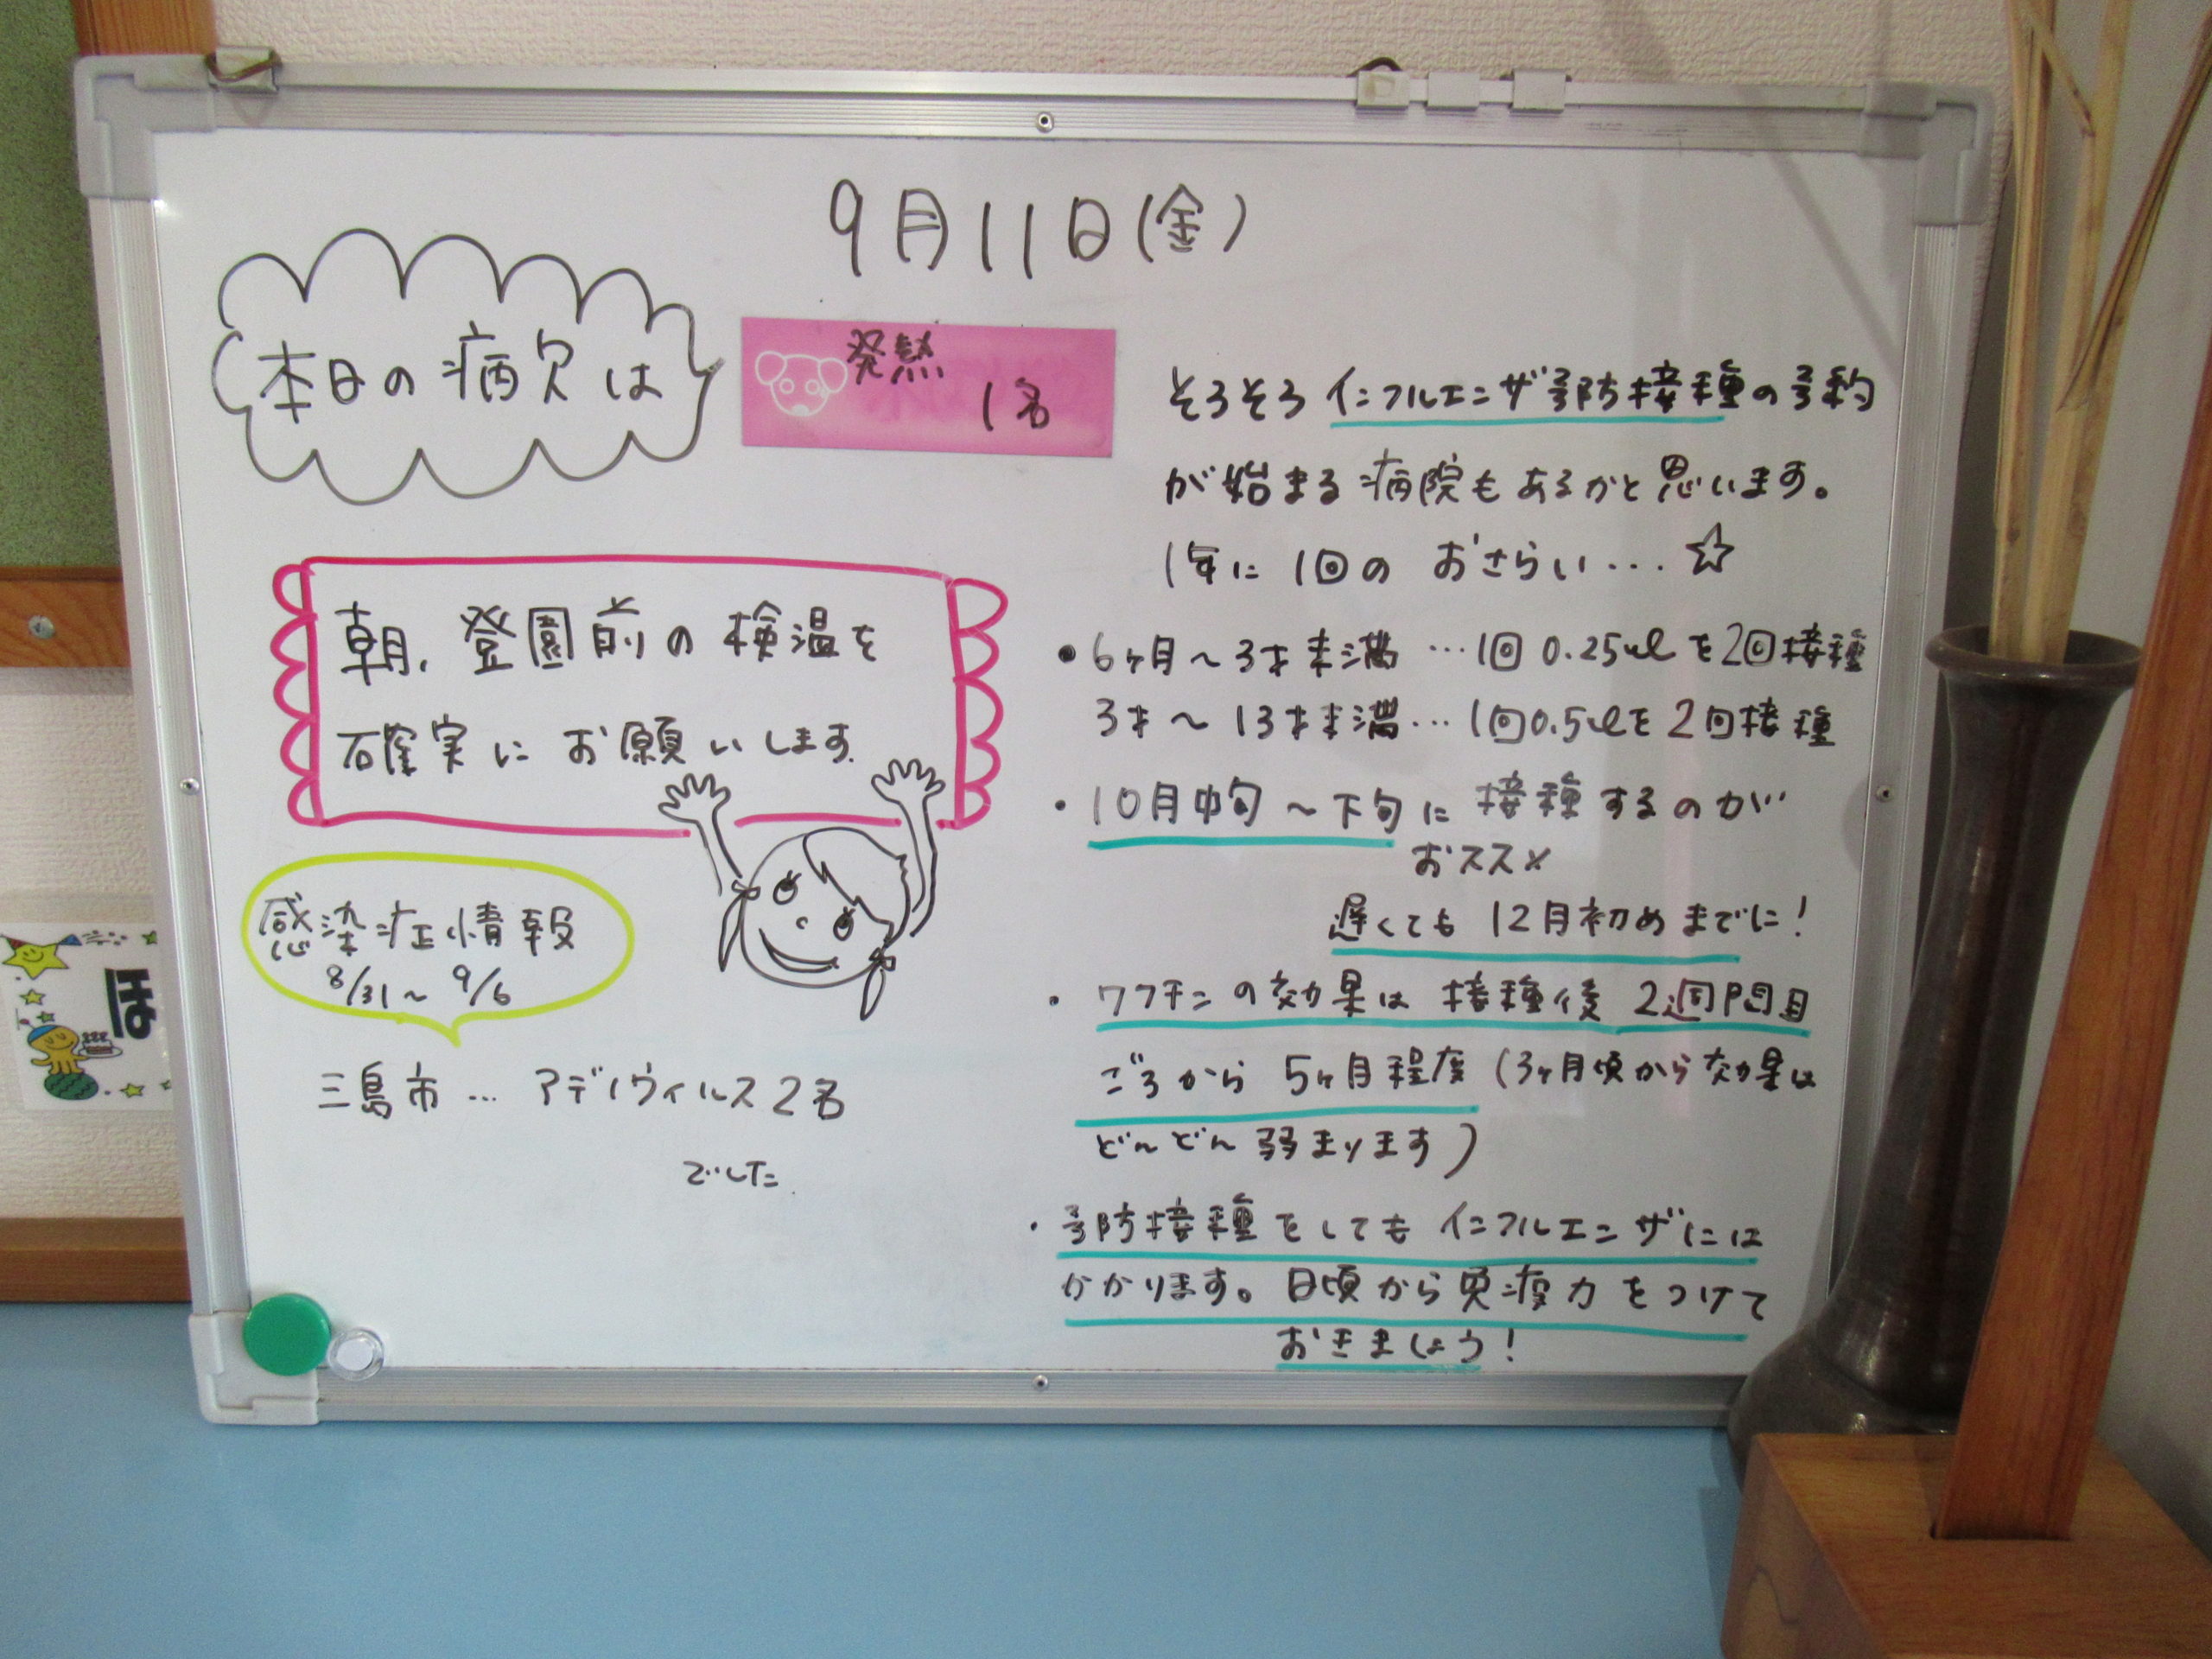 9月11日(金)
本日の病欠は
発熱
1名
朝、登園前の検温を
確実にお願いします。
感染症情報
8/31～9/6
三島市…アデノウィルス2名
でした。
そろそろインフルエンザ予防接種の予約
が始まる病院もあるかと思います。
1年に1回のおさらい…☆
・6ヶ月～3才未満…1回0.25mlを2回接種
3才～13才未満…1回0.5mlを2回接種
・10月中旬～下旬に接種するのが
おススメ
遅くても12月初めまでに！
・ワクチンの効果は接種後2週間目
ごろから5ヶ月程度(3ヶ月頃から効果は
どんどん弱まります)
・予防接種をしてもインフルエンザには
かかります。日頃から免疫力をつけて
おきましょう！
ほ